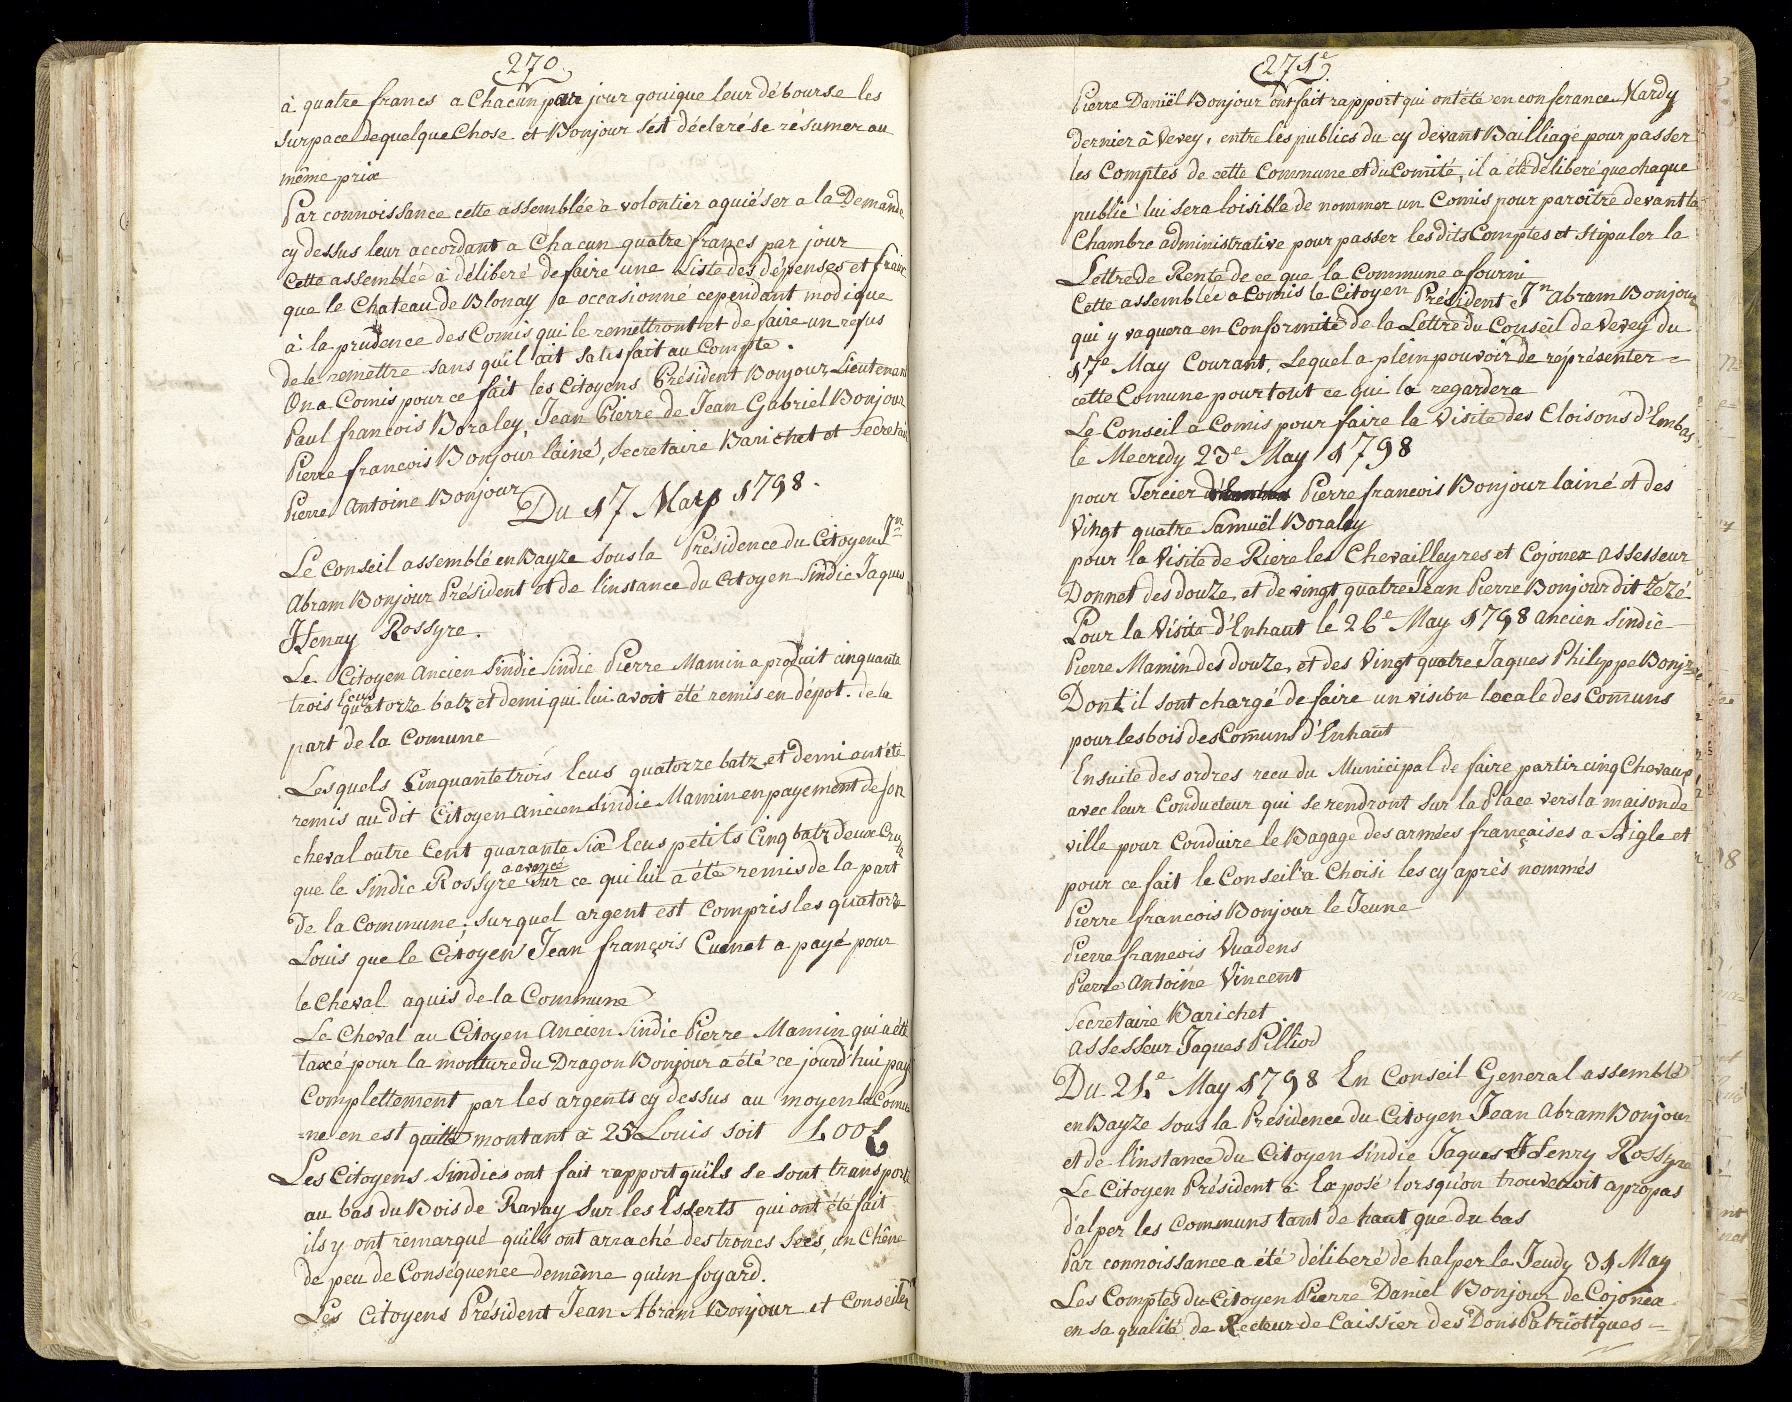 270
à quatre francs a Chacun par jour qouique leur débourse les
surpace de quelque Chose et Bonjour s'est déclaré se résumer au
même prix
Par connoissance cette assemblée a volontier aquiéser a la Demande
cy dessus leur accordant a Chacun quatre francs par jour
Cette assemblée à déliberé de faire une Liste des dépenses et fraix
que le Chateau de Blonay a occasionné cependant modique
à la prudence des Comis qui le remettront et de faire un refus
de le remettre sans qu'il ait satisfait au Compte.
On a Comis pour ce fait les Citoyens Président Bonjour, Lieutenant
Paul francois Boraley, Jean Pierre de Jean Gabriel Bonjour
Pierre francois Bonjour lainé, Secretaire Barichet et Secretaire
Pierre Antoine Bonjour
Du 17 Mays 1798.
Le Conseil assemblé en Bayze sous la Présidence du Citoyen Jn
Abram Bonjour Président et de l'instance du Citoyen Sindic Jaques
Henry Rossyre.
Le Citoyen Ancien Sindic Sindic Pierre Mamin a produit cinquante
trois Ecus quatorze batz et demi qui lui avoit été remis en dépot. de la
part de la Comune
Lesquels Cinquante trois Ecus quatorze batz et demi ont été
remis au dit Citoyen Ancien Sindic Mamin en payement de son
cheval outre Cent quarante Six Ecus petits Cinq batz deux Cruz
que le Sindic Rossyre a avancé sur ce qui lui a été remis de la part
De la Commune; sur quel argent est compris les quatorze
Louis que le Citoyen Jean françois Cuenet a payé pour
le Cheval aquis de la Commune
Le Cheval au Citoyen Ancien Sindic Pierre Mamin qui a été
taxé pour la monture du Dragon Bonjour a été ce jourd'hui payé
Complettement par les argents cy dessus au moyen la Comu-
=ne en est quitte montant à 25 Louis soit L 00
Les Citoyens Sindics ont fait rapport qu'ils se sont transporté
au bas du Bois de Ravay sur les Esserts qui ont été fait
ils y ont remarqué qu'ils ont arraché des troncs secs, un Chêne
de peu de Conséquence de même qu'un foyard.
Les Citoyens Président Jean Abram Bonjour et Conseiler
271e
Pierre Daniël Bonjour ont fait rapport qui ont été en conferance Mardy
dernier à Vevey, entre les publics du cy devant Bailliage pour passer
les Comptes de cette Commune et du Comité, il a été déliberé que chaque
public lui sera loisible de nommer un Comis pour paroître devant la
Chambre administrative pour passer les dits Comptes et stipuler la
Lettre de Rente de ce que la Commune a fourni
Cette assemblée a Comis le Citoyen Président Jn Abram Bonjour
qui y vaguera en Conformité de la Lettre du Conseil de Vevey du
17e May Courant, Lequel a plein pouvoir de réprésenter =
cette Comune pour tout ce qui la regardera
Le Conseil a Comis pour faire la Visite des Cloisons d'Embas
le Mecredy 23e May 1798
pour Tercier Pierre francois Bonjour lainé et des
Vingt quatre Samuël Boraley
pour la Visite de Riere les Chevailleyres et Cojonex Assesseur
Donnet des douze, et de vingt quatre Jean Pierre Bonjour dit Zezé
Pour la Visite d'Enhaut le 26e May 1798 ancien Sindic
Pierre Mamin des douze, et des Vingt quatre Jaques Philippe Bonjr
Dont il sont chargé de faire un vision locale des Comuns
pour les bois des Comuns d'Enhaut
Ensuite des ordres recu du Municipal de faire partir cinq Chevaux
avec leur Conducteur qui se rendront sur la Place vers la maison de
ville pour Conduire le Bagage des armées françaises a Aigle et
pour ce fait le Conseil a Choisi les cy après nommés
Pierre francois Bonjour le Jeune
Pierre francois Vuadens
Pierre Antoine Vincent
Secretaire Barichet
Assesseur Jaques Pilliod
Du 21e May 1798 En Conseil General assemblé
en Bayze sous la Présidence du Citoyen Jean Abram Bonjour
et de l'instance du Citoyen Sindic Jaques Henry Rossyre
Le Citoyen Président à Exposé lorsqu'on trouveroit apropas
d'alper les Communs tant de haut que du bas
Par connoissance a été déliberé de halper le Jeudy 31 May
Les Comptes du Citoyen Pierre Daniel Bonjour de Cojonex
en sa qualité de Recteur de Caissier des Dons Patriotiques =